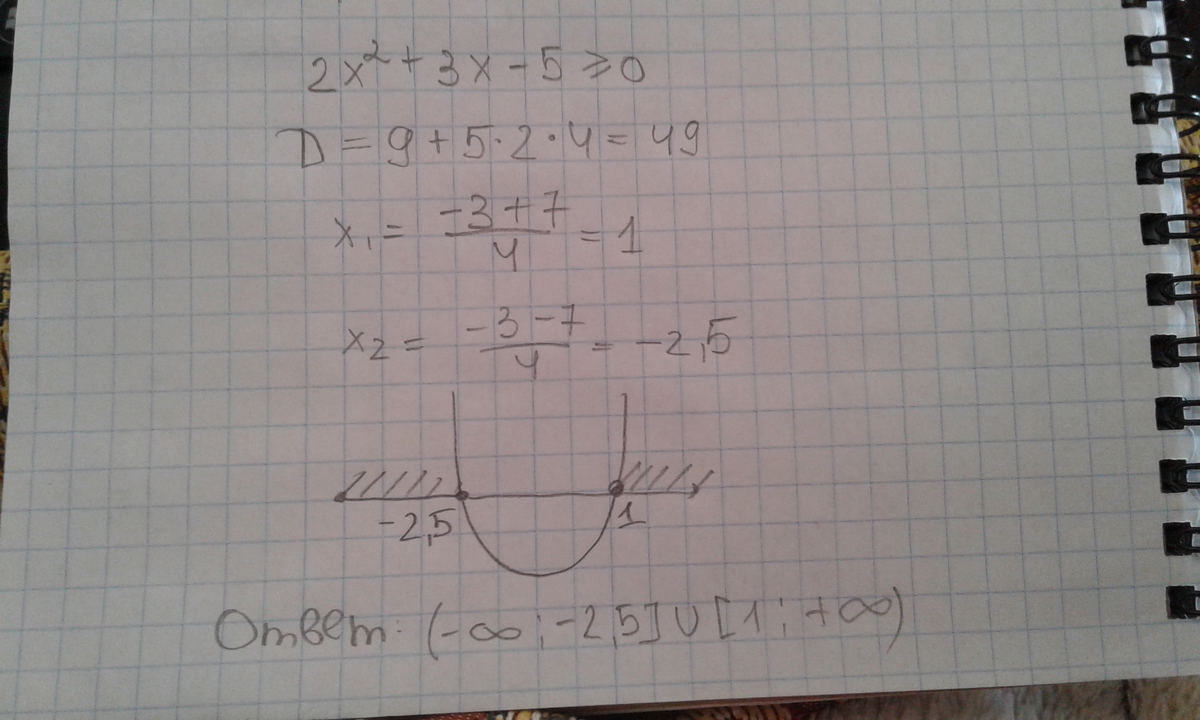 2x² + 3x - 5 ≥ 0
D = 9 + 5·2·4 = 49
x₁ = (-3+7)/4 = 1
x₂ = (-3-7)/4 = -2,5
-2,5 1
Ответ: (-∞; -2,5] ∪ [1; +∞)